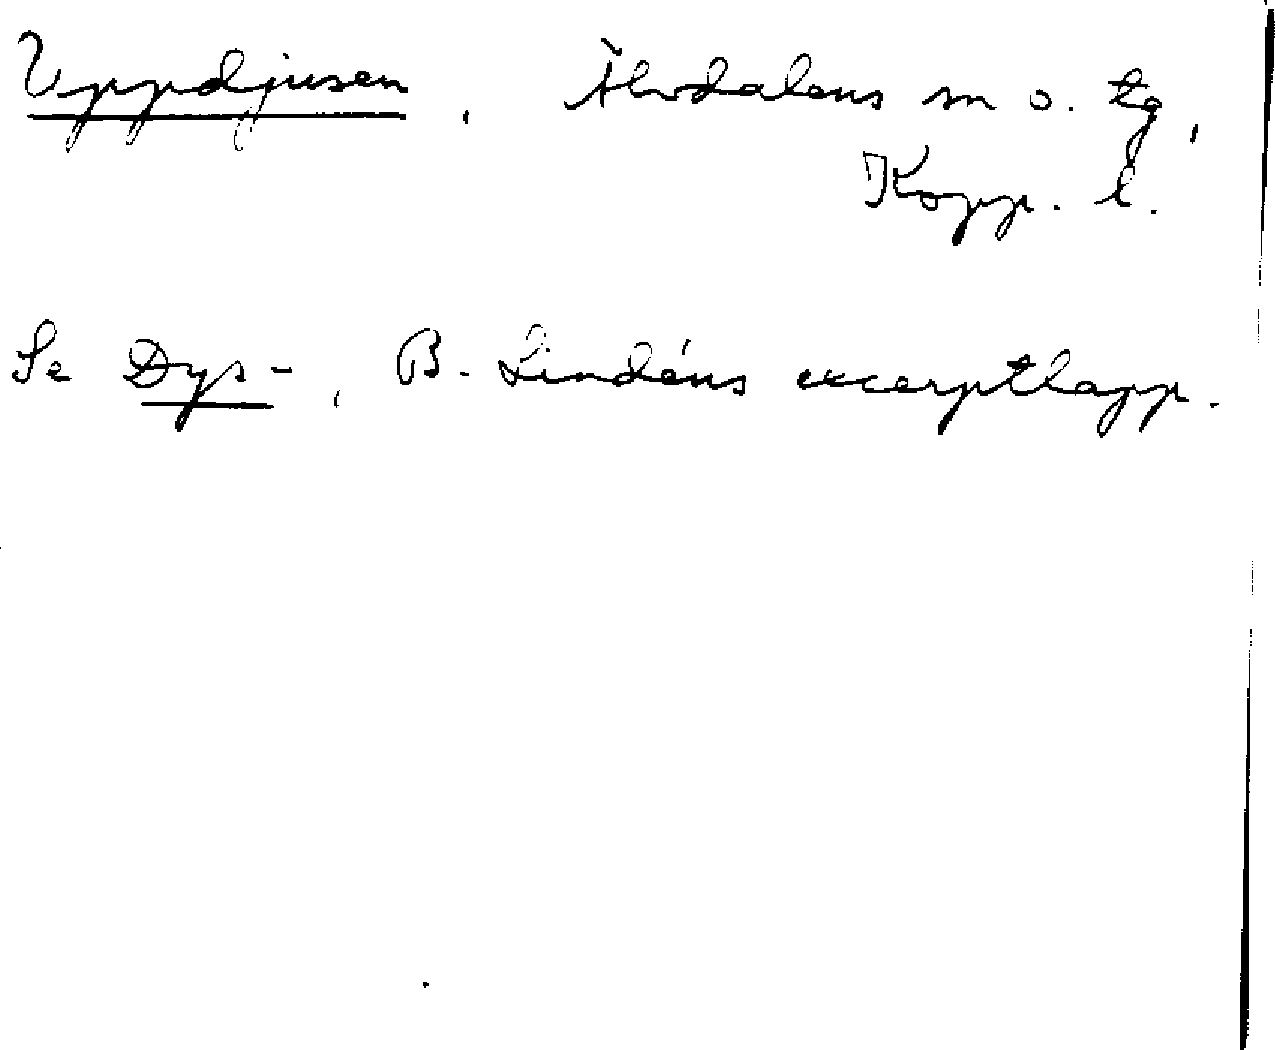 Uppdjusen, Älvdalens sn o. tg,
Kopp. l.
Se Dys-, B. Lindéns excerptlapp.